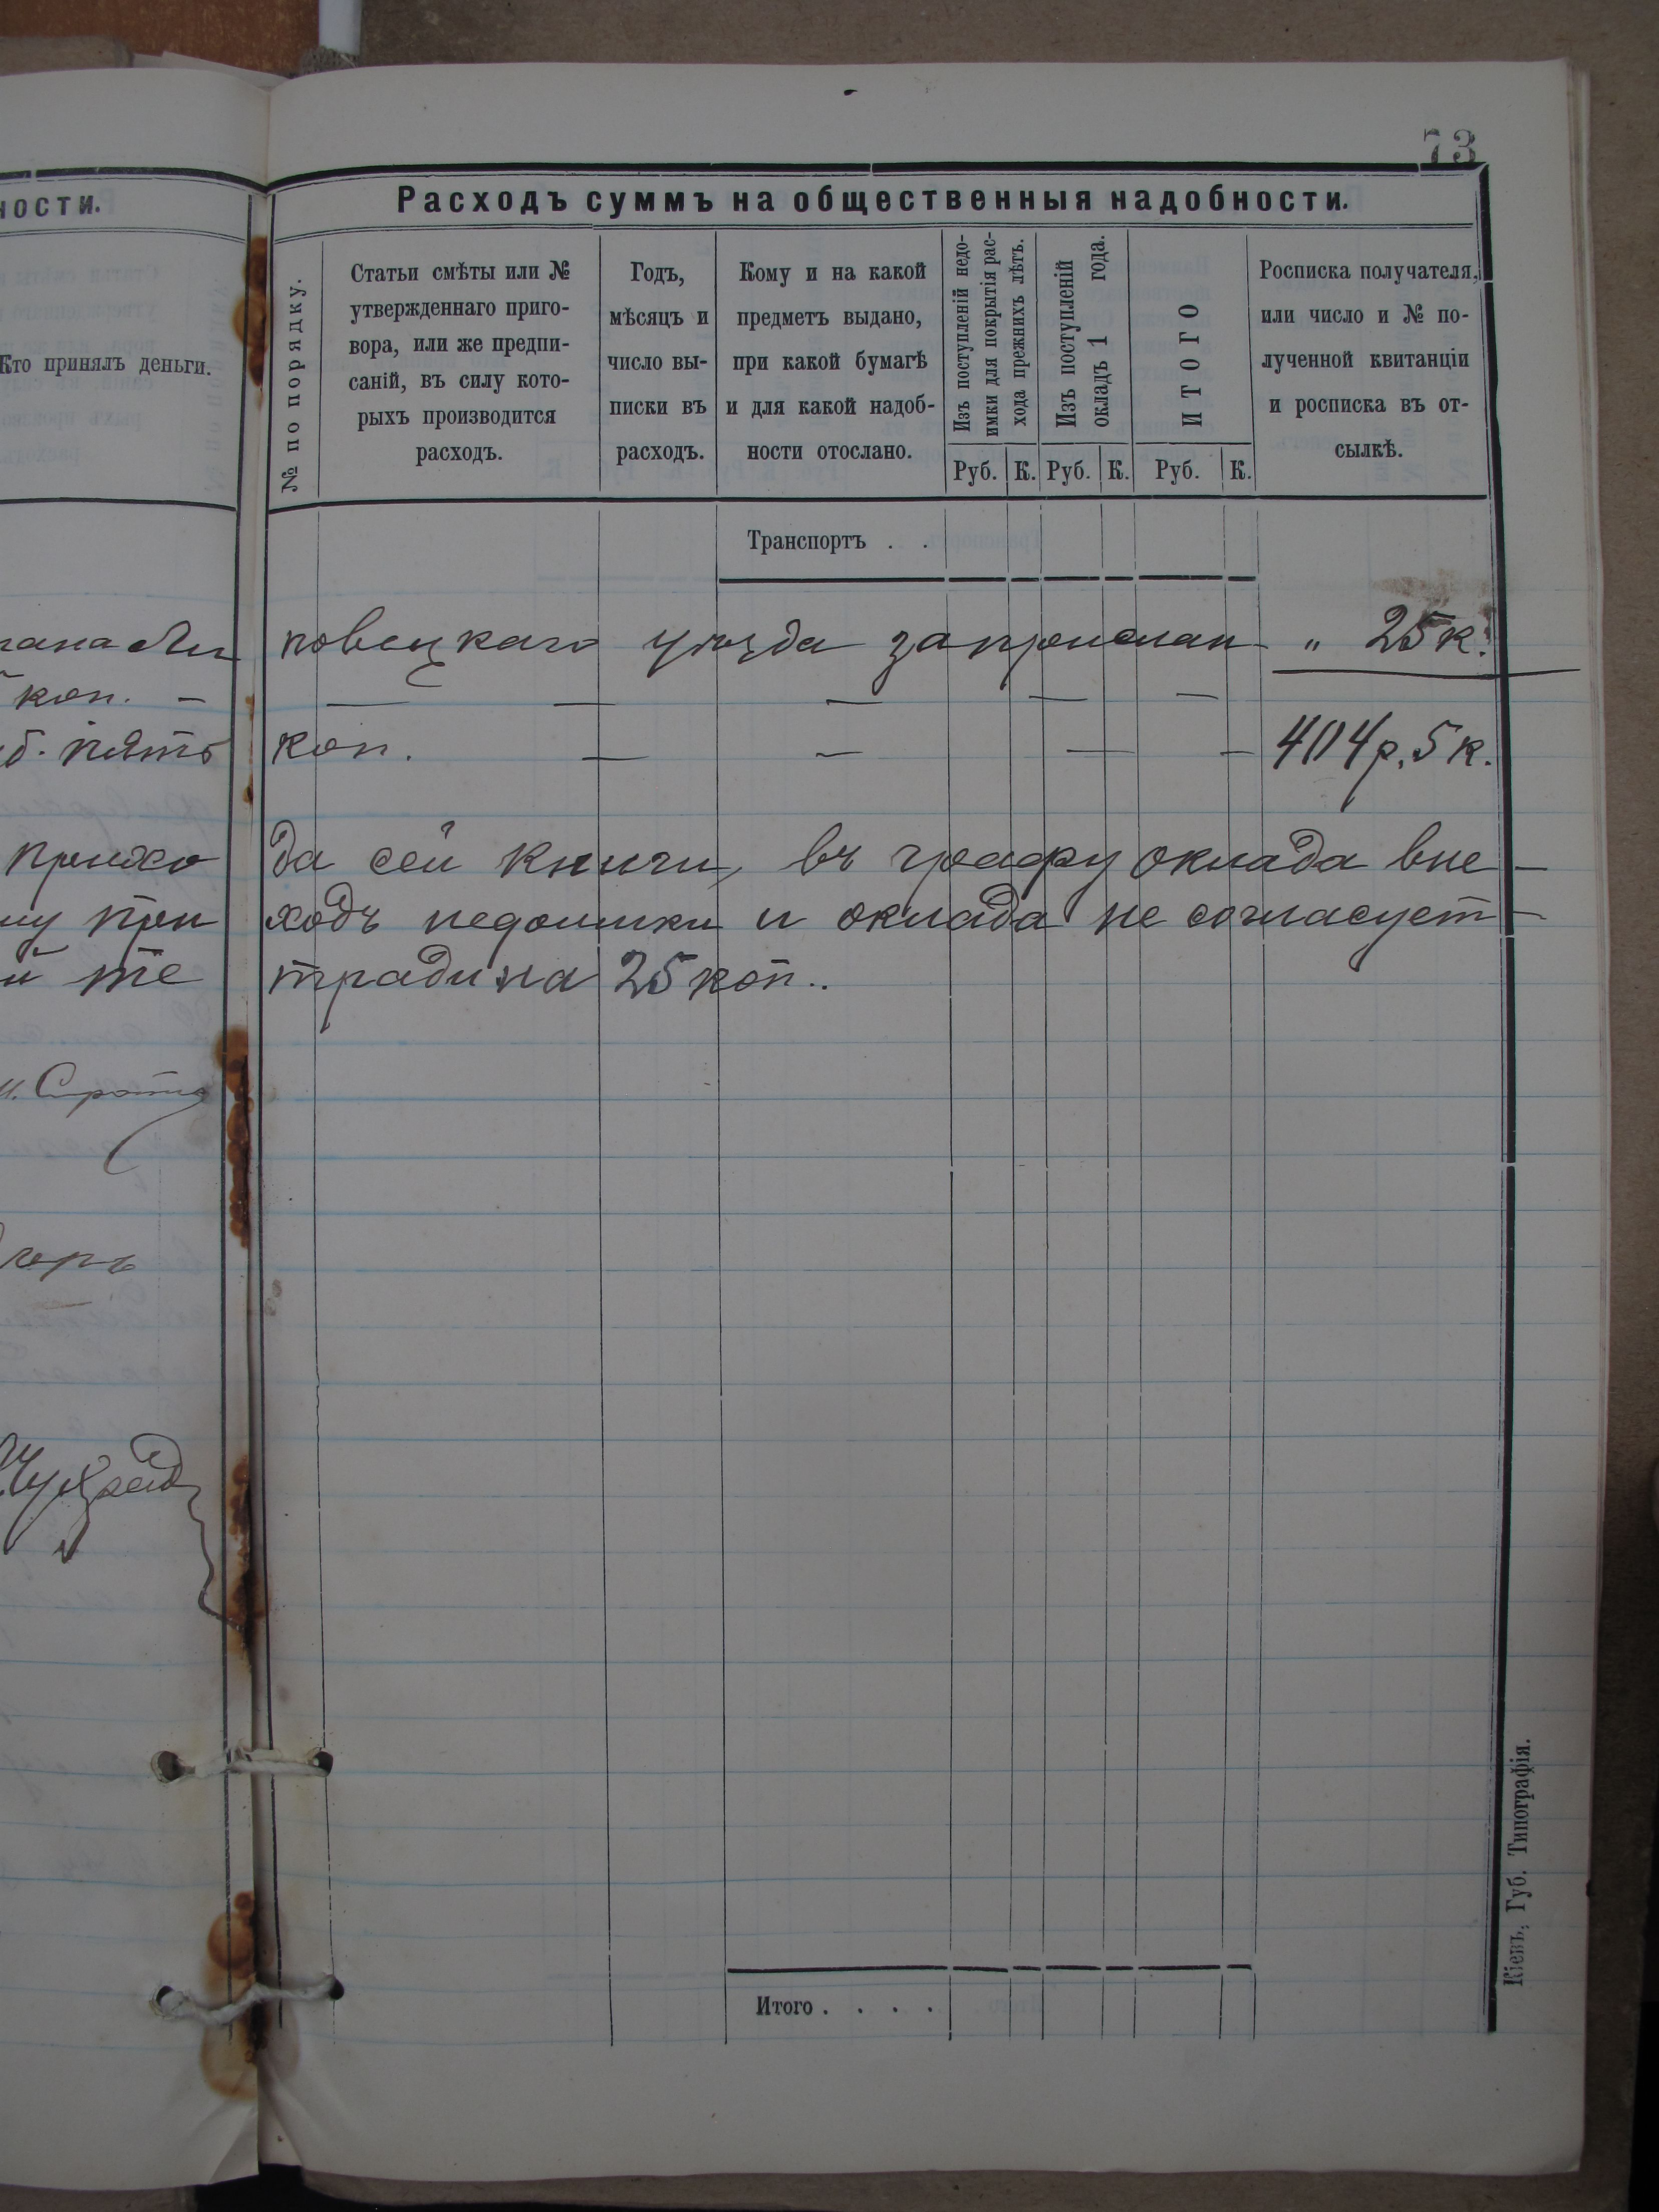 73
ности.
Кто принялъ деньги.
Расходъ суммъ на общественныя надобности.
№ по порядку.
Статьи смѣты или №
утвержденнаго приго-
вора, или же предпи-
саній, въ силу кото-
рыхъ производится
расходъ.
Годъ,
мѣсяцъ и
число вы-
писки въ
расходъ.
Кому и на какой
предметъ выдано,
при какой бумагѣ
и для какой надоб-
ности отослано.
Изъ поступленій недо-
имки для покрытія рас-
хода прежнихъ лѣтъ.
Изъ поступленій
окладъ 1 года.
ИТОГО
Руб. К. Руб. К. Руб. К.
Росписка получателя,
или число и № по-
лученной квитанціи
и росписка въ от-
сылкѣ.
Транспортъ . .
повецкаго уѣзда за „ 25 к.
коп. — — — — — —
б. пять коп. — — — — 404 р. 5 к.
прихо да сей книги, въ графу оклада вне —
му при ходъ недоимки и оклада не согласует —
й те тради на 25 коп..
Итого . . . .
Кіевъ, Губ. Типографія.